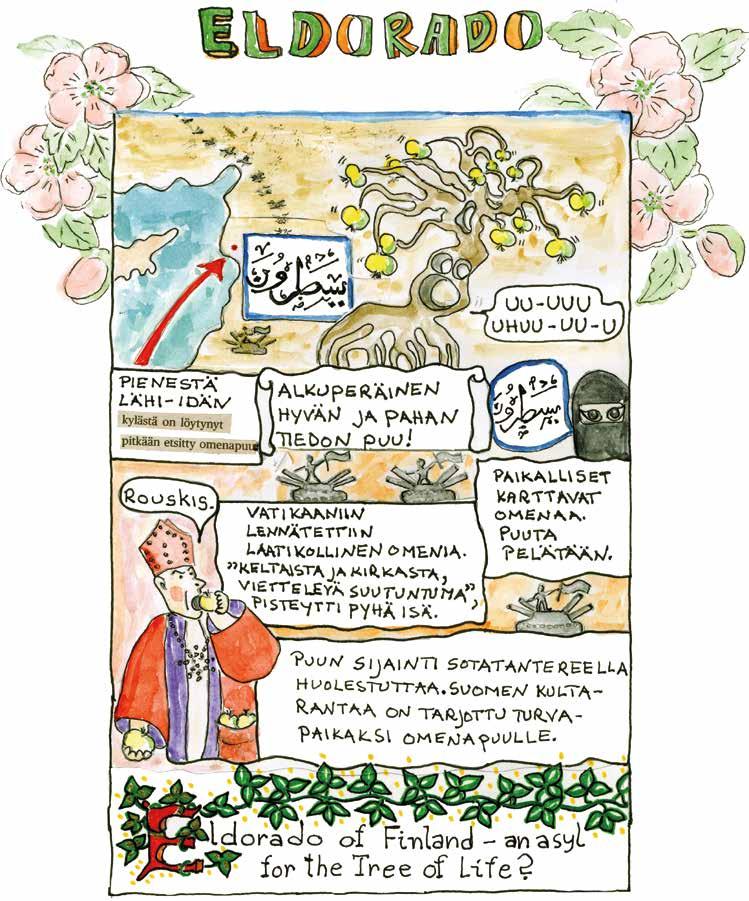 ELDORADO
UU-UUU
UHUU-UU-U
PIENESTÄ
LÄHI-IDÄN
kylästä on löytynyt
pitkään etsitty omenapuu
ALKUPERÄINEN
HYVÄN JA PAHAN
TIEDON PUU!
PAIKALLISET
KARTTAVAT
OMENAA.
PUUTA
PELÄTÄÄN.
ROUSKIS.
VATIKAANIIN
LENNÄTETTIIN
LAATIKOLLINEN OMENIA.
"KELTAISTA JA KIRKASTA,
VIETTELEVÄ SUUTUNTUMA",
PISTEYTTI PYHÄ ISÄ.
PUUN SIJAINTI SOTATANTEREELLA
HUOLESTUTTAA. SUOMEN KULTA-
RANTAA ON TARJOTTU TURVA-
PAIKAKSI OMENAPUULLE.
Eldorado of Finland – an asyl
for the Tree of Life?